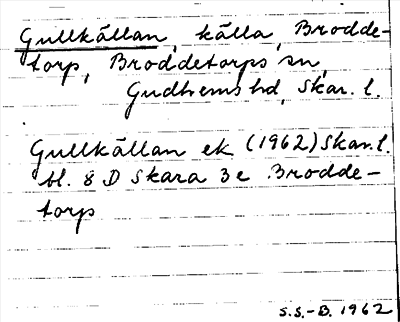 Gullkällan, källa, Brodde-
torp, Broddetorps sn,
Gudhems hd, Skar. l.
Gullkällan ek (1962) Skar. l.
bl. 8 D Skara 3e Brodde-
torp
S.S.-B. 1962